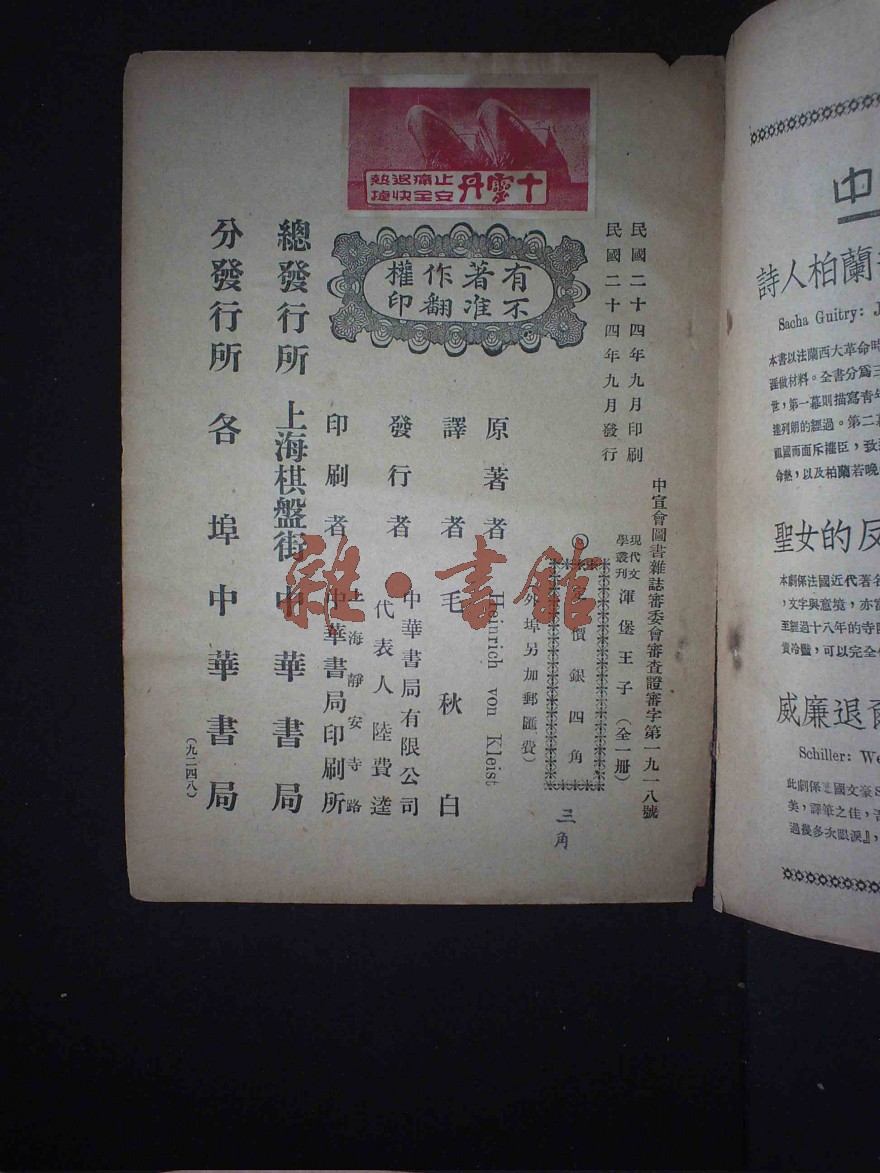 十靈丹
止痛退熱
安全快捷
民國二十四年九月印刷
民國二十四年九月發行
有著作權
不准翻印
中宣會圖書雜誌審委會審查證審字第一九一八號
現代文學叢刊 渾堡王子（全一册）
價銀四角
三角
（外埠另加郵匯費）
原著者 Heinrich von Kleist
譯者 毛秋白
發行者 中華書局有限公司
代表人 陸費逵
印刷者 上海靜安寺路
中華書局印刷所
總發行所 上海棋盤街 中華書局
分發行所 各埠中華書局
（九二四八）
雜·書館
中
詩人柏蘭
Sacha Guitry: J
本書以法蘭西大革命時
涯做材料。全書分爲三
世，第一幕則描寫青年
達列朗的經過。第二幕
祖國而面斥權臣，致
命熱，以及柏蘭若晚
聖女的反
本劇係法國近代著名
，文字與意境，亦富
至經過十八年的寺
責冷豔，可以完全
威廉退爾
Schiller: We
此劇係德國文豪S
美，譯筆之佳，
過幾多次眼淚』，